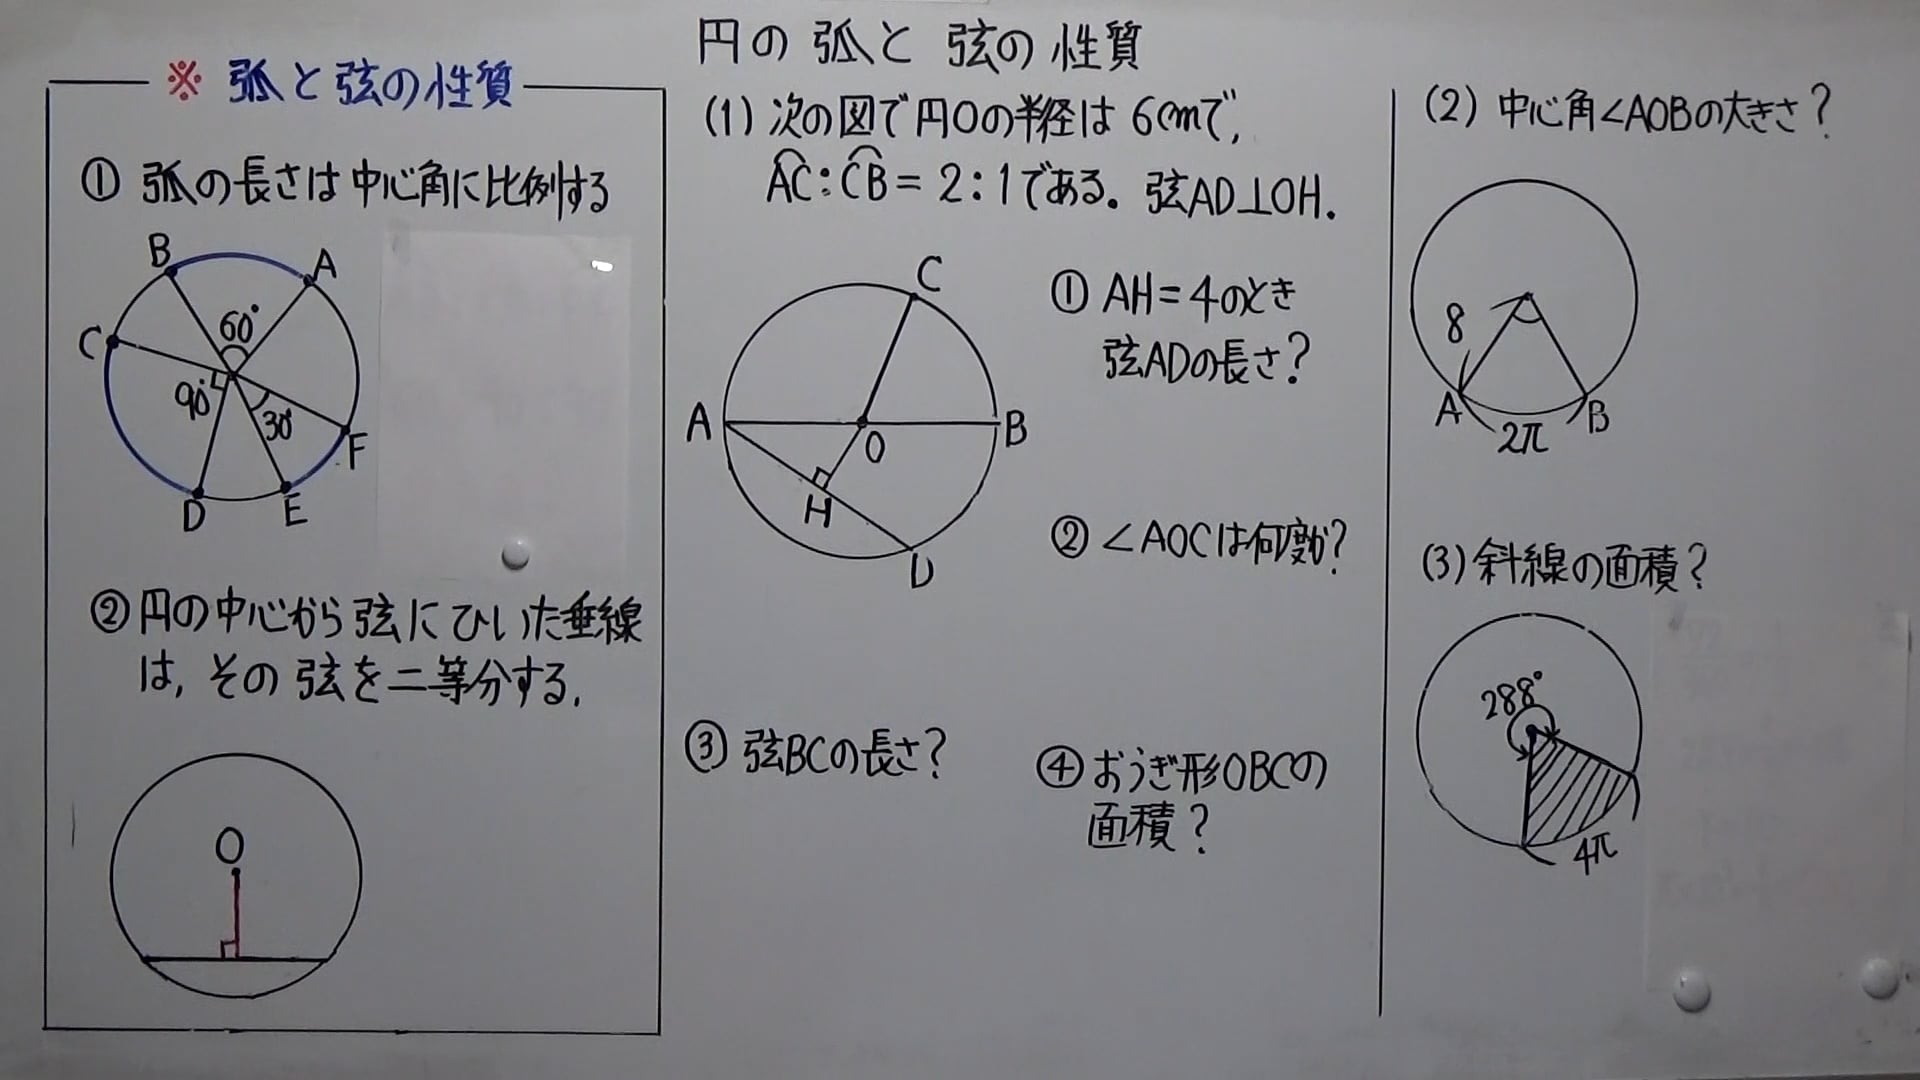 円の弧と弦の性質
※ 弧と弦の性質
① 弧の長さは中心角に比例する
B
A
C
60°
90°
30°
F
D
E
② 円の中心から弦にひいた垂線
は, その弦を二等分する.
O
(1) 次の図で円Oの半径は6cmで,
AC:CB=2:1である。弦AD⊥OH.
C
A
O
B
H
D
① AH=4のとき
弦ADの長さ?
② ∠AOCは何度か?
③ 弦BCの長さ?
④ おうぎ形OBCの
面積?
(2) 中心角∠AOBの大きさ?
8
A
B
2π
(3) 斜線の面積?
288°
4π